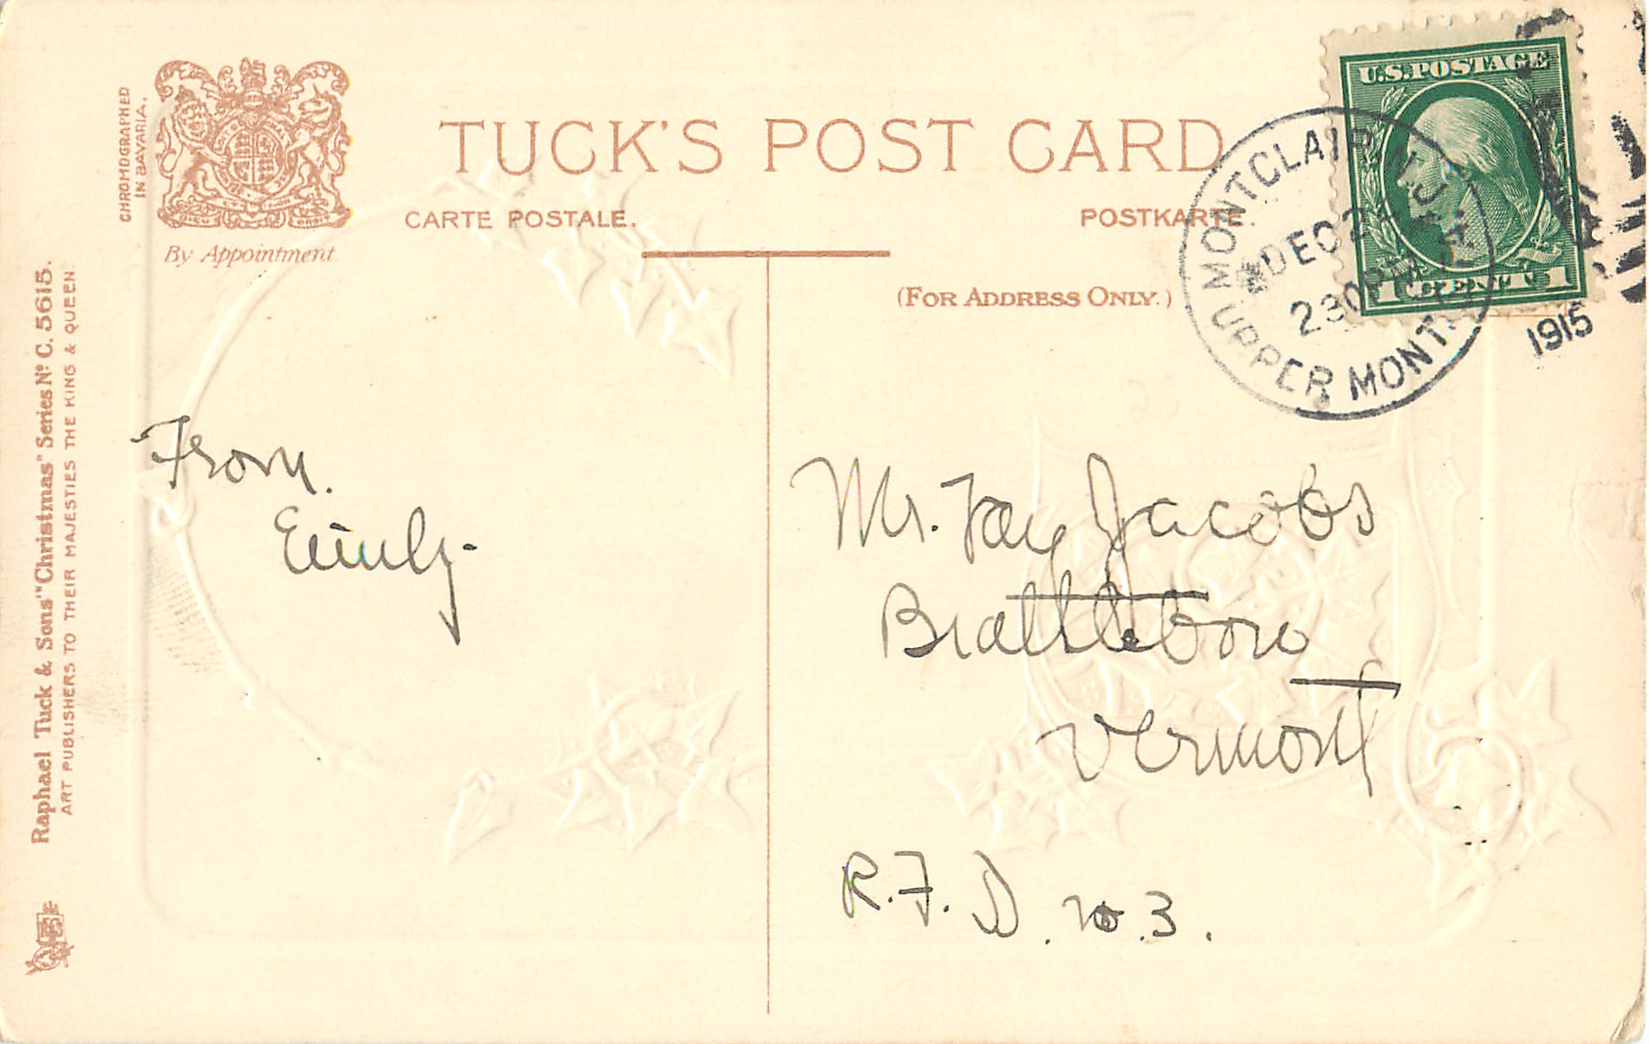 CHROMOGRAPHED
IN BAVARIA.
By Appointment
TUCK'S POST CARD
CARTE POSTALE.
POSTKARTE.
(FOR ADDRESS ONLY.)
U.S. POSTAGE
1 CENT 1
MONTCLAIR, N.J.
DEC 2
230 PM
UPPER MONT
1915
Raphael Tuck & Sons' "Christmas" Series Nº C. 5615.
ART PUBLISHERS TO THEIR MAJESTIES THE KING & QUEEN
From.
Emily-
Mr. Fay Jacobs
Brattleboro
Vermont
R.F.D. no 3.